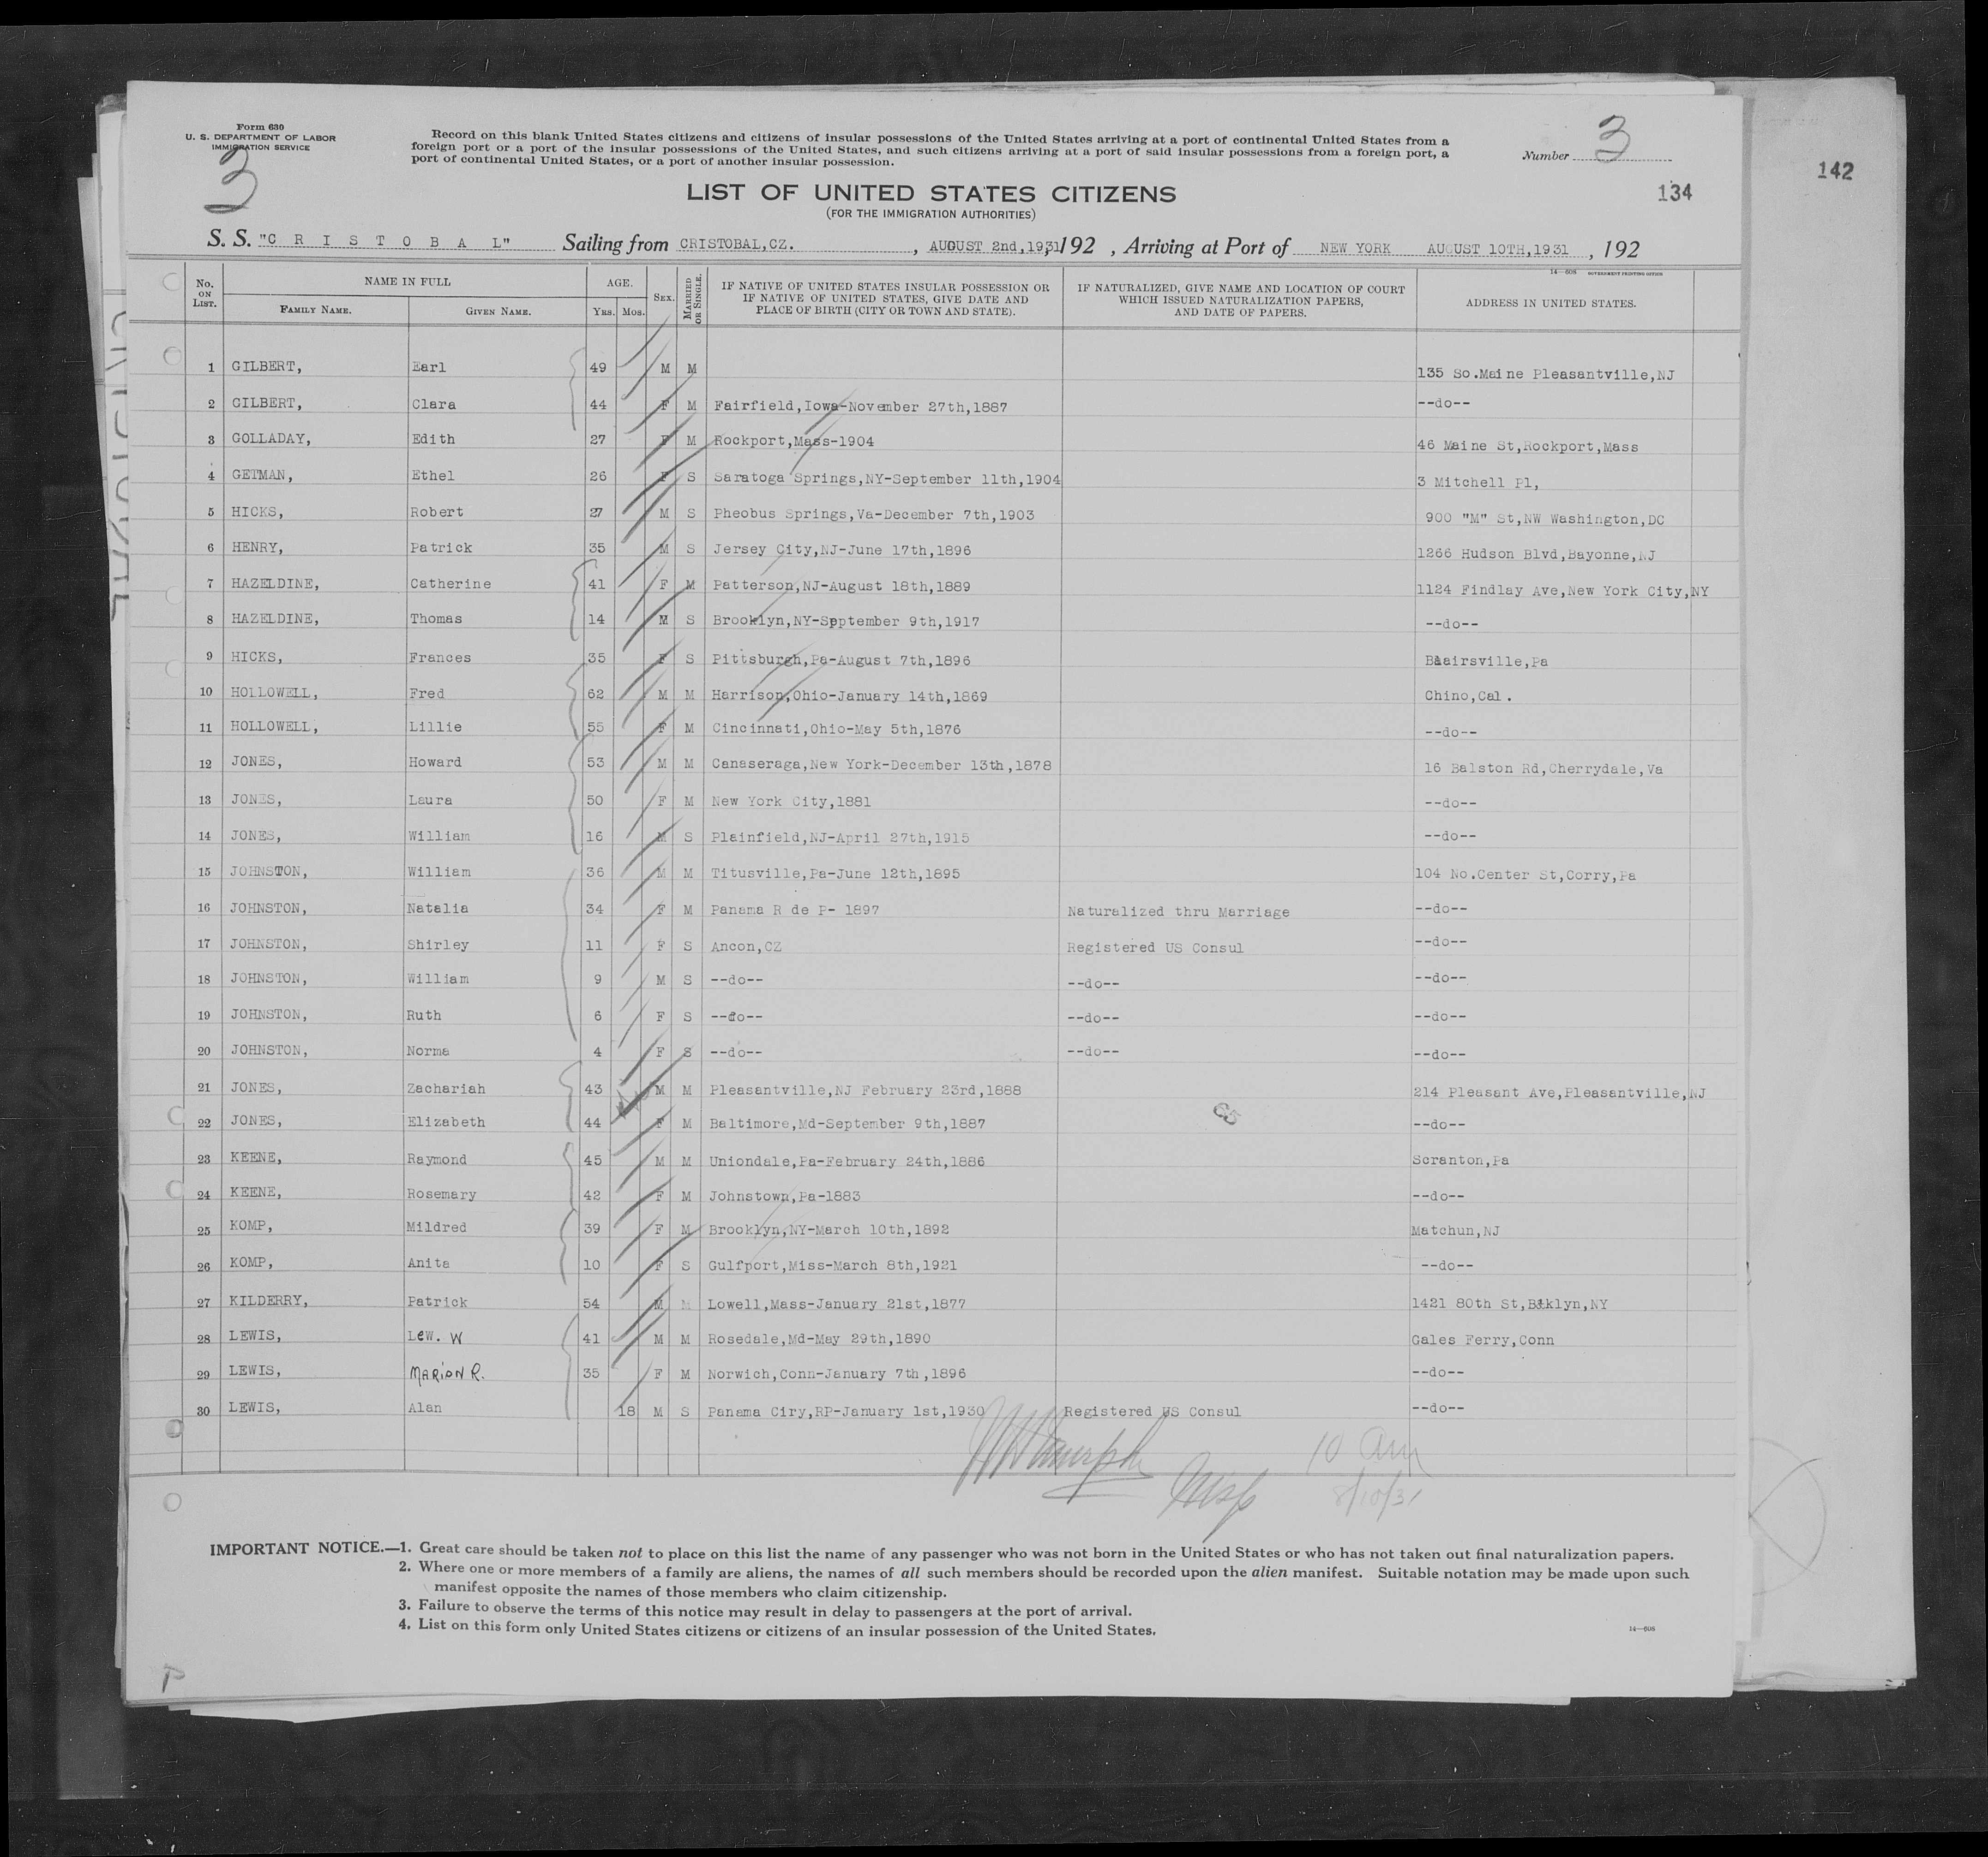 Form 630
U. S. DEPARTMENT OF LABOR
IMMIGRATION SERVICE
3
Record on this blank United States citizens and citizens of insular possessions of the United States arriving at a port of continental United States from a
foreign port or a port of the insular possessions of the United States, and such citizens arriving at a port of said insular possessions from a foreign port, a
port of continental United States, or a port of another insular possession.
Number 3
142
134
LIST OF UNITED STATES CITIZENS
(FOR THE IMMIGRATION AUTHORITIES)
S. S. "C R I S T O B A L" Sailing from CRISTOBAL,CZ. , AUGUST 2nd,1931, 192 , Arriving at Port of NEW YORK AUGUST 10TH,1931 , 192
14—608 GOVERNMENT PRINTING OFFICE
No. ON LIST. NAME IN FULL FAMILY NAME. GIVEN NAME. AGE. YRS. MOS. SEX. MARRIED OR SINGLE. IF NATIVE OF UNITED STATES INSULAR POSSESSION OR IF NATIVE OF UNITED STATES, GIVE DATE AND PLACE OF BIRTH (CITY OR TOWN AND STATE). IF NATURALIZED, GIVE NAME AND LOCATION OF COURT WHICH ISSUED NATURALIZATION PAPERS, AND DATE OF PAPERS. ADDRESS IN UNITED STATES.
1 GILBERT, Earl 49 M M 135 So.Maine Pleasantville,NJ
2 GILBERT, Clara 44 F M Fairfield,Iowa-November 27th,1887 --do--
3 GOLLADAY, Edith 27 F M Rockport,Mass-1904 46 Maine St,Rockport,Mass
4 GETMAN, Ethel 26 F S Saratoga Springs,NY-September 11th,1904 3 Mitchell Pl,
5 HICKS, Robert 27 M S Pheobus Springs,Va-December 7th,1903 900 "M" St,NW Washington,DC
6 HENRY, Patrick 35 M S Jersey City,NJ-June 17th,1896 1266 Hudson Blvd,Bayonne,NJ
7 HAZELDINE, Catherine 41 F M Patterson,NJ-August 18th,1889 1124 Findlay Ave,New York City,NY
8 HAZELDINE, Thomas 14 M S Brooklyn,NY-September 9th,1917 --do--
9 HICKS, Frances 35 F S Pittsburgh,Pa-August 7th,1896 Blairsville,Pa
10 HOLLOWELL, Fred 62 M M Harrison,Ohio-January 14th,1869 Chino,Cal.
11 HOLLOWELL, Lillie 55 F M Cincinnati,Ohio-May 5th,1876 --do--
12 JONES, Howard 53 M M Canaseraga,New York-December 13th,1878 16 Balston Rd,Cherrydale,Va
13 JONES, Laura 50 F M New York City,1881 --do--
14 JONES, William 16 M S Plainfield,NJ-April 27th,1915 --do--
15 JOHNSTON, William 36 M M Titusville,Pa-June 12th,1895 104 No.Center St,Corry,Pa
16 JOHNSTON, Natalia 34 F M Panama R de P- 1897 Naturalized thru Marriage --do--
17 JOHNSTON, Shirley 11 F S Ancon,CZ Registered US Consul --do--
18 JOHNSTON, William 9 M S --do-- --do-- --do--
19 JOHNSTON, Ruth 6 F S --do-- --do-- --do--
20 JOHNSTON, Norma 4 F S --do-- --do-- --do--
21 JONES, Zachariah 43 M M Pleasantville,NJ February 23rd,1888 214 Pleasant Ave,Pleasantville,NJ
22 JONES, Elizabeth 44 F M Baltimore,Md-September 9th,1887 --do--
23 KEENE, Raymond 45 M M Uniondale,Pa-February 24th,1886 Scranton,Pa
24 KEENE, Rosemary 42 F M Johnstown,Pa-1883 --do--
25 KOMP, Mildred 39 F M Brooklyn,NY-March 10th,1892 Matchun,NJ
26 KOMP, Anita 10 F S Gulfport,Miss-March 8th,1921 --do--
27 KILDERRY, Patrick 54 M M Lowell,Mass-January 21st,1877 1421 80th St,Bklyn,NY
28 LEWIS, Lew. W 41 M M Rosedale,Md-May 29th,1890 Gales Ferry,Conn
29 LEWIS, MARION R. 35 F M Norwich,Conn-January 7th,1896 --do--
30 LEWIS, Alan 18 M S Panama Ciry,RP-January 1st,1930 Registered US Consul --do--
10 am
Insp
8/10/31
IMPORTANT NOTICE.—1. Great care should be taken not to place on this list the name of any passenger who was not born in the United States or who has not taken out final naturalization papers.
2. Where one or more members of a family are aliens, the names of all such members should be recorded upon the alien manifest. Suitable notation may be made upon such
manifest opposite the names of those members who claim citizenship.
3. Failure to observe the terms of this notice may result in delay to passengers at the port of arrival.
4. List on this form only United States citizens or citizens of an insular possession of the United States.
14—608
P